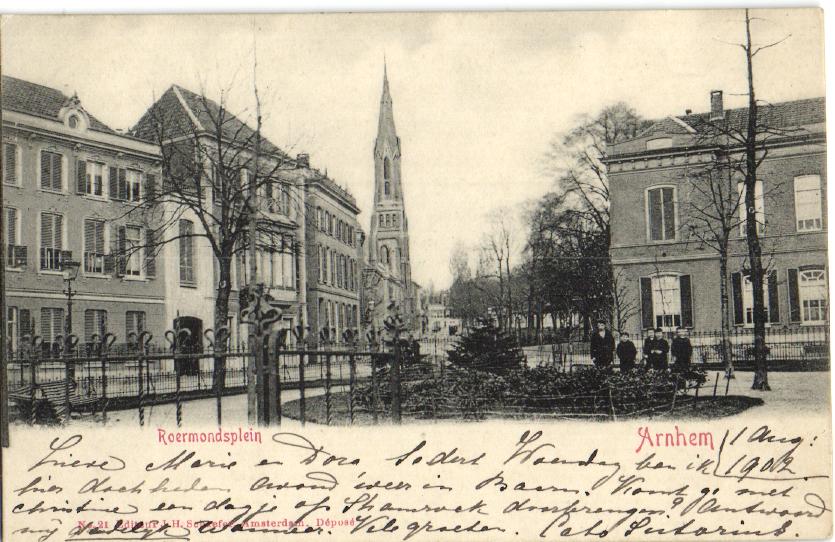 Roermondsplein
Arnhem
1 Aug:
1902
Lieve Marie en Dora Sedert Woensdag ben ik
hier doch heden avond weer in Baarn. Komt gij met
Christine een dagje op Shamrock doorbrengen? Antwoord
mij dadelijk wanneer. Vele groeten. Cato Sutorius.
No 21 Editeur J.H. Schaefer, Amsterdam. Déposé